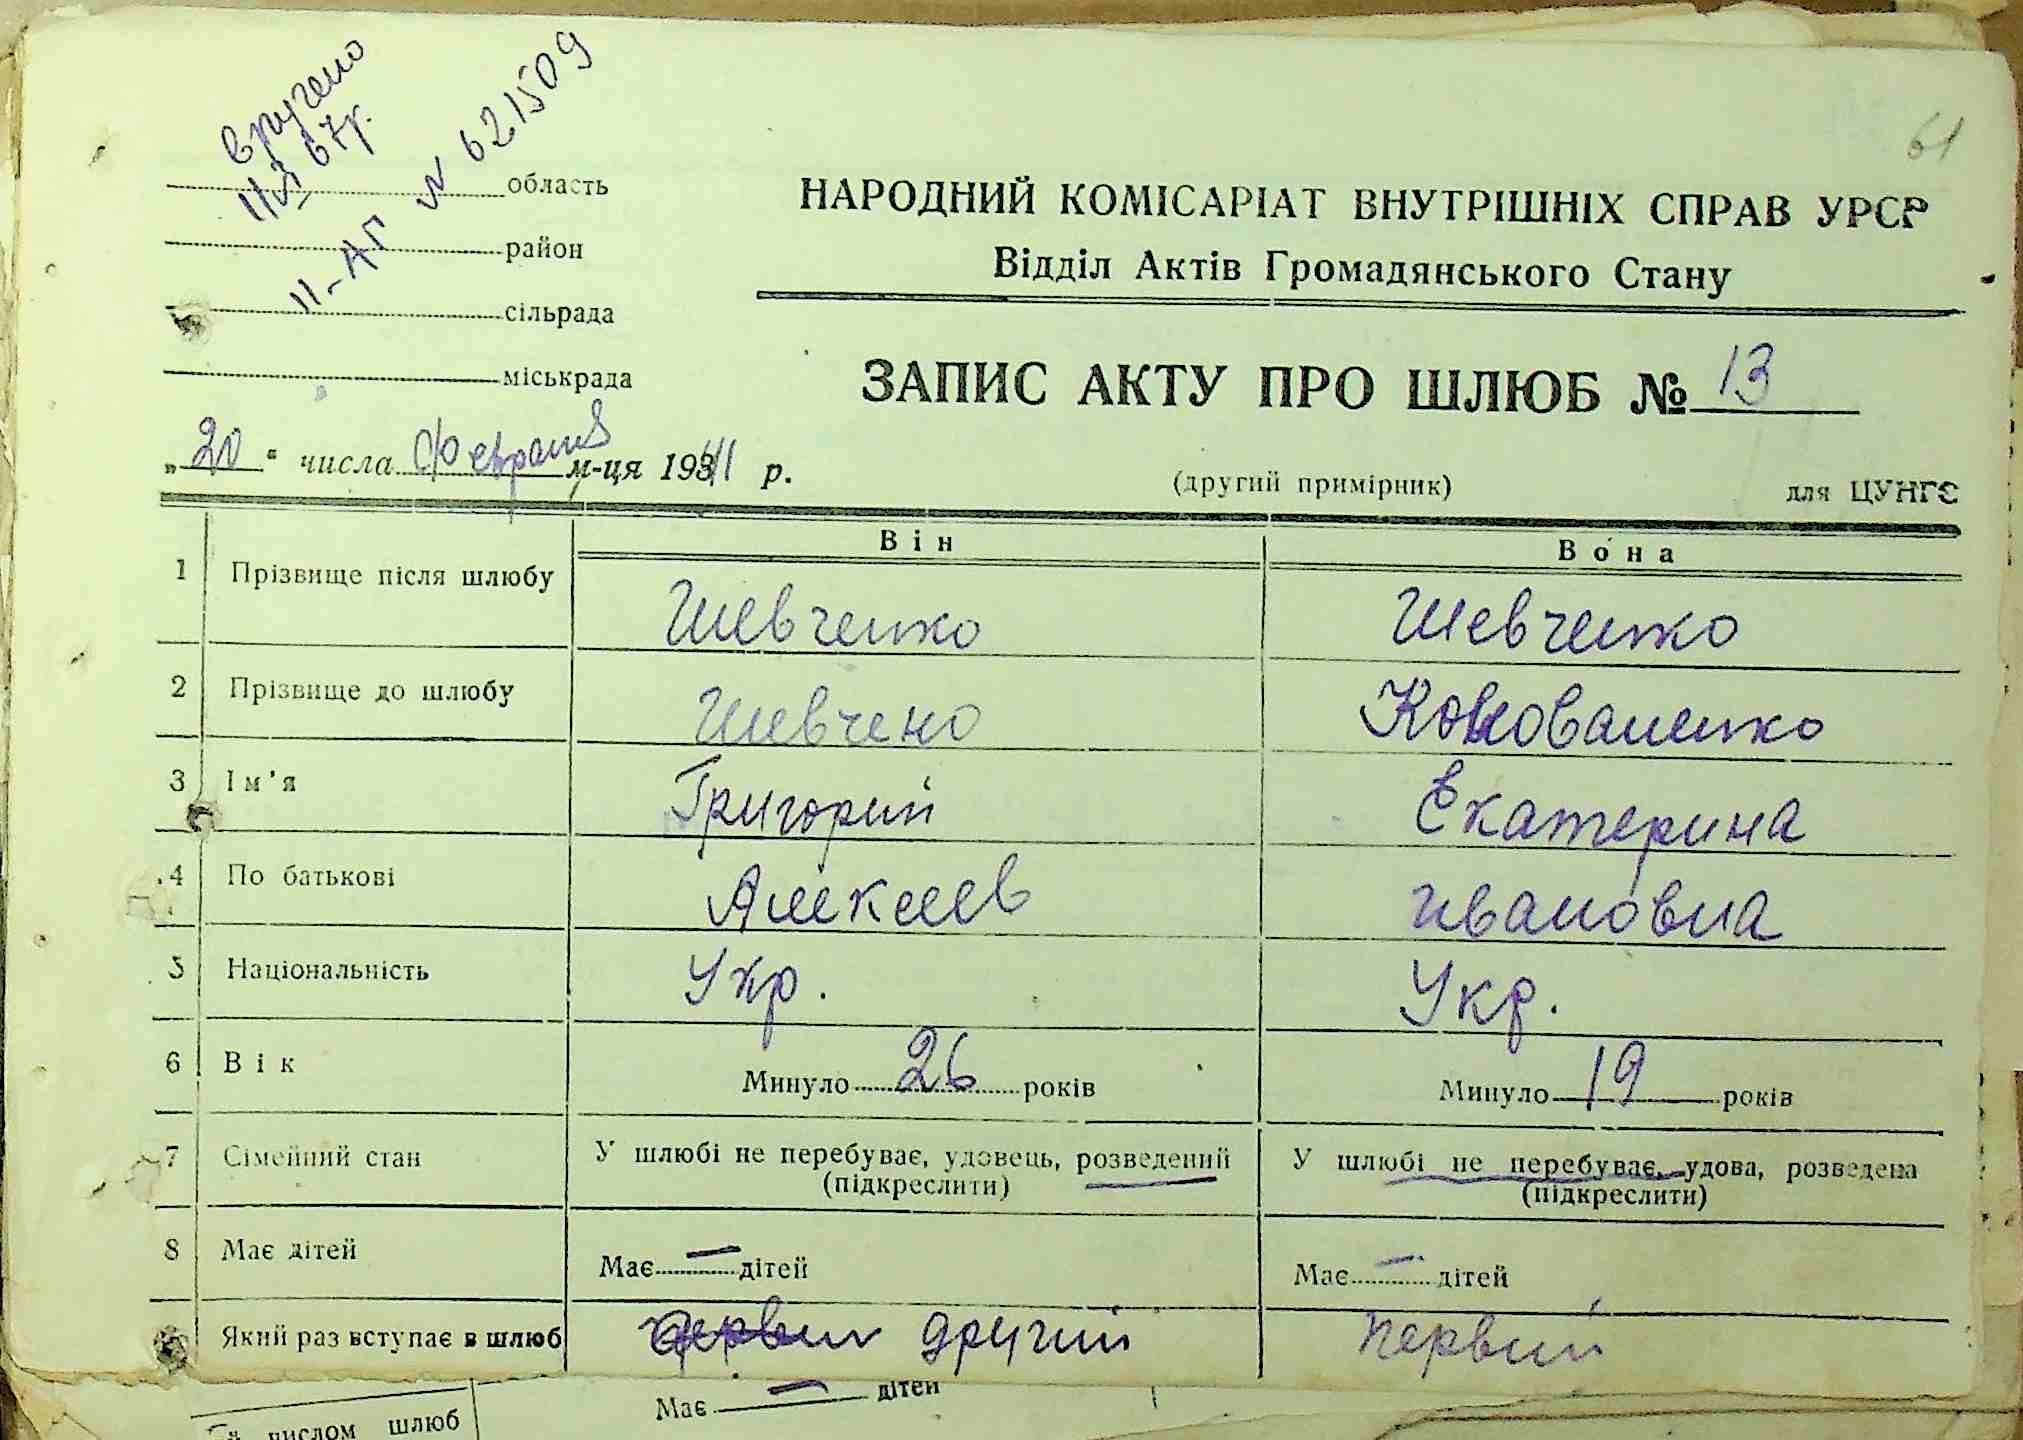 вручено
67г.
II-АГ № 621509
61
область
район
сільрада
міськрада
НАРОДНИЙ КОМІСАРІАТ ВНУТРІШНІХ СПРАВ УРСР
Відділ Актів Громадянського Стану
ЗАПИС АКТУ ПРО ШЛЮБ № 13
„20“ числа Февраля м-ця 1941 р.
(другий примірник) для ЦУНГО
Він Вона
1 Прізвище після шлюбу Шевченко Шевченко
2 Прізвище до шлюбу Шевчено Коноваленко
3 Ім'я Григорий Екатерина
4 По батькові Алексеев Ивановна
5 Національність Укр. Укр.
6 Вік Минуло 26 років Минуло 19 років
7 Сімейний стан У шлюбі не перебуває, удовець, розведений У шлюбі не перебуває, удова, розведена
(підкреслити) (підкреслити)
8 Має дітей Має — дітей Має — дітей
Який раз вступає в шлюб первый другий первий
Має — дітей
числом шлюб